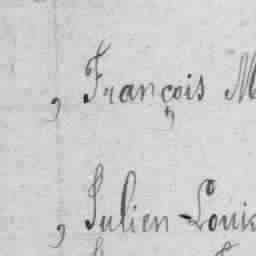 , François M
, Julien-Louis